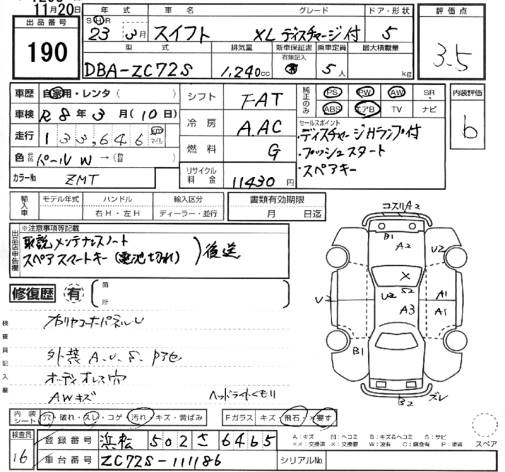 11月20日
出品番号 190
年式 23年 3月
車名 スイフト
グレード XL ディスチャージ付
ドア・形状 5
評価点 3.5
型式 DBA-ZC72S
排気量 1,240cc
新車保証書 有 保証記入
乗車定員 5人
最大積載量 kg
車歴 自家用・レンタ( )
車検 R8年3月(10日)
走行 133,646
色 パールW →( )
カラーNo ZMT
シフト FAT
冷房 A.AC
燃料 G
リサイクル料金 11430円
純正のみ PS PW AW SR ABS エアB TV ナビ
セールスポイント
・ディスチャージランプ付
・プッシュスタート
・スペアキー
内装評価 b
輸入車 モデル年式 ハンドル 右H・左H 輸入区分 ディーラー・並行
書類有効期限 月 日迄
※注意事項等記載
取説 メンテナンスノート
スペアスマートキー(電池切れ)
後送
修復歴 有 箇所
検査員記入欄
外装 A.U.S.
オーディオレス穴
AWキズ
ヘッドライトくもり
コスリA2
B1 A2 U2
X S2
U2 U2 A1
A3 A1
B1
B2 ズレ
内装シート 穴・破れ・スレ・コゲ・汚れ・キズ・黄ばみ
Fガラス キズ・飛石・要す
検査員 16
登録番号 浜松 502 さ 6465
車台番号 ZC72S-111186
シリアルNo
スペア